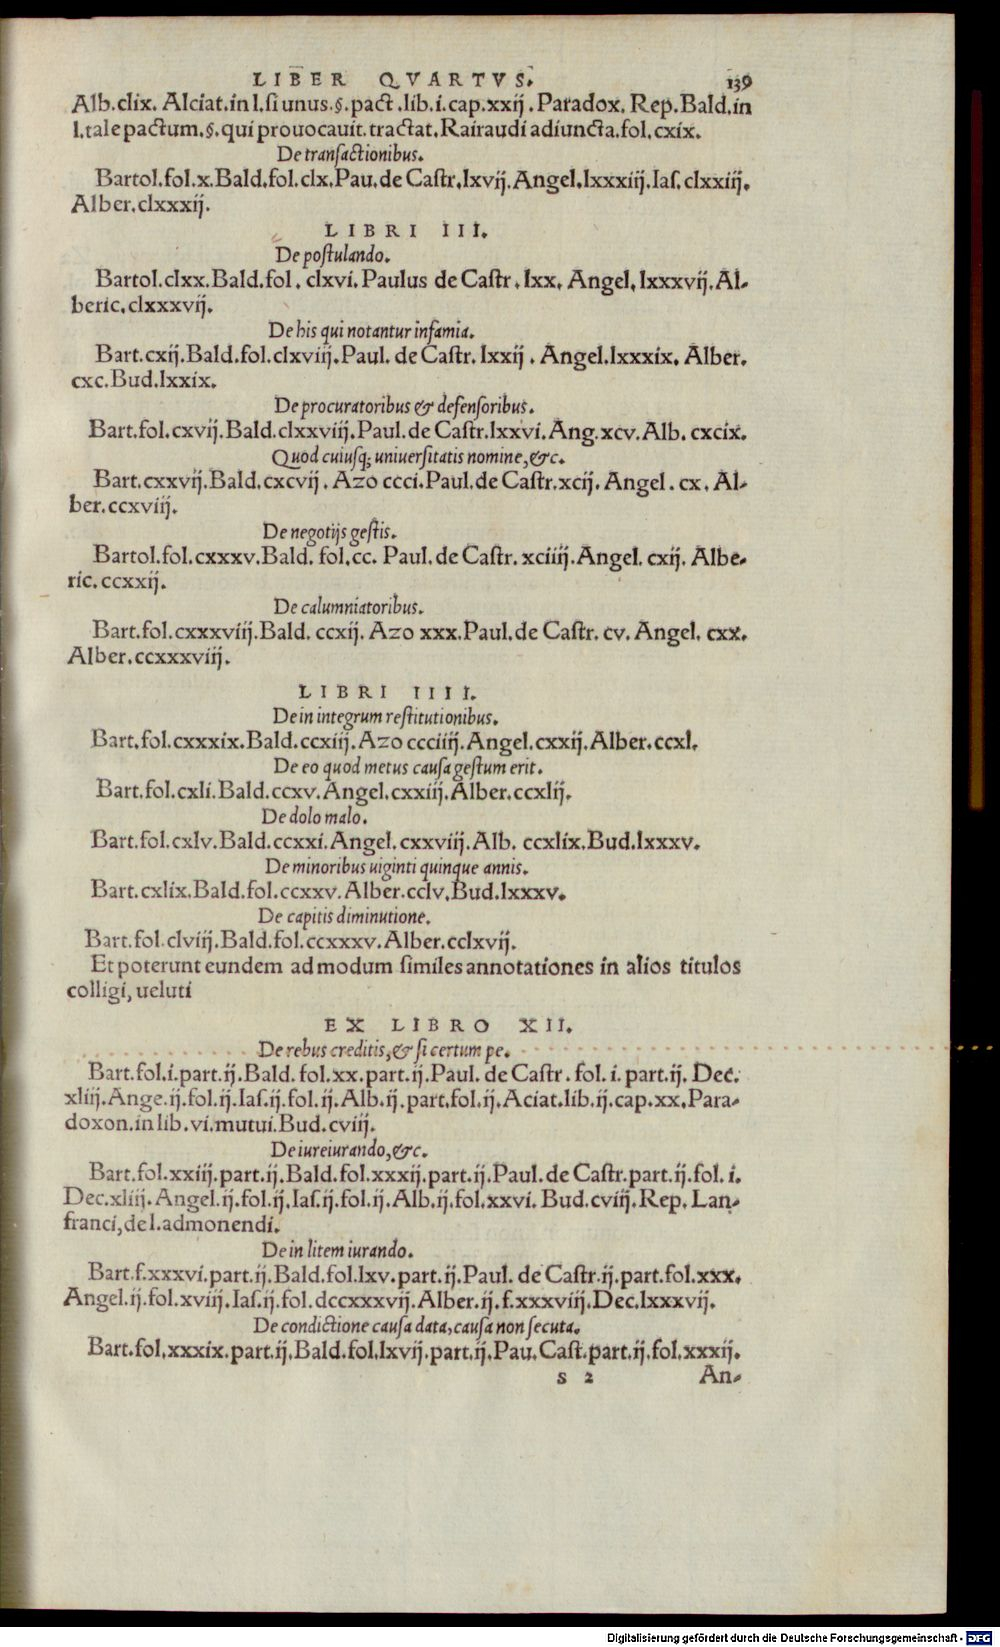 LIBER QVARTVS. 139
Alb.clix. Alciat.in l.si unus.§.pact.lib.i.cap.xxij.Paradox. Rep.Bald.in
l.tale pactum.§.qui prouocauit.tractat.Rairaudi adiuncta.fol.cxix.
De transactionibus.
Bartol.fol.x.Bald.fol.clx.Pau.de Castr.lxvij.Angel.lxxxiij.Ias.clxxiij.
Alber.clxxxij.
LIBRI III.
De postulando.
Bartol.clxx.Bald.fol.clxvi.Paulus de Castr.lxx. Angel.lxxxvij.Al-
beric.clxxxvij.
De his qui notantur infamia.
Bart.cxij.Bald.fol.clxviij.Paul. de Castr. lxxij. Angel.lxxxix. Alber.
cxc.Bud.lxxix.
De procuratoribus & defensoribus.
Bart.fol.cxvij.Bald.clxxviij.Paul.de Castr.lxxvi.Ang.xcv.Alb.cxcix.
Quod cuiusq; uniuersitatis nomine,&c.
Bart.cxxvij.Bald.cxcvij. Azo ccci.Paul.de Castr.xcij.Angel.cx.Al-
ber.ccxviij.
De negotijs gestis.
Bartol.fol.cxxxv.Bald.fol.cc. Paul.de Castr.xciiij.Angel.cxij.Albe-
ric.ccxxij.
De calumniatoribus.
Bart.fol.cxxxviij.Bald. ccxij. Azo xxx.Paul.de Castr.cv.Angel.cxx.
Alber.ccxxxviij.
LIBRI IIII.
De in integrum restitutionibus.
Bart.fol.cxxxix.Bald.ccxiij.Azo ccciiij.Angel.cxxij.Alber.ccxl.
De eo quod metus causa gestum erit.
Bart.fol.cxli.Bald.ccxv.Angel.cxxiij.Alber.ccxlij.
De dolo malo.
Bart.fol.cxlv.Bald.ccxxi.Angel.cxxviij.Alb.ccxlix.Bud.lxxxv.
De minoribus uiginti quinque annis.
Bart.cxlix.Bald.fol.ccxxv.Alber.cclv.Bud.lxxxv.
De capitis diminutione.
Bart.fol.clviij.Bald.fol.ccxxxv.Alber.cclxvij.
Et poterunt eundem ad modum similes annotationes in alios titulos
colligi, ueluti
EX LIBRO XII.
De rebus creditis,& si certum pe.
Bart.fol.i.part.ij.Bald. fol.xx.part.ij.Paul. de Castr.fol.i.part.ij. Dec.
xliij.Ange.ij.fol.ij.Ias.ij.fol.ij.Alb.ij.part.fol.ij.Aciat.lib.ij.cap.xx.Para-
doxon.in lib.vi.mutui.Bud.cviij.
De iureiurando,&c.
Bart.fol.xxiij.part.ij.Bald.fol.xxxij.part.ij.Paul.de Castr.part.ij.fol.i.
Dec.xliij.Angel.ij.fol.ij.Ias.ij.fol.ij.Alb.ij.fol.xxvi. Bud.cviij.Rep.Lan-
franci,de l.admonendi.
De in litem iurando.
Bart.f.xxxvi.part.ij.Bald.fol.lxv.part.ij.Paul.de Castr.ij.part.fol.xxx.
Angel.ij.fol.xviij.Ias.ij.fol.dccxxxvij.Alber.ij.f.xxxviij.Dec.lxxxvij.
De condictione causa data,causa non secuta.
Bart.fol.xxxix.part.ij.Bald.fol.lxvij.part.ij.Pau.Cast.part.ij.fol.xxxij.
s 2 An-
Digitalisierung gefördert durch die Deutsche Forschungsgemeinschaft - DFG